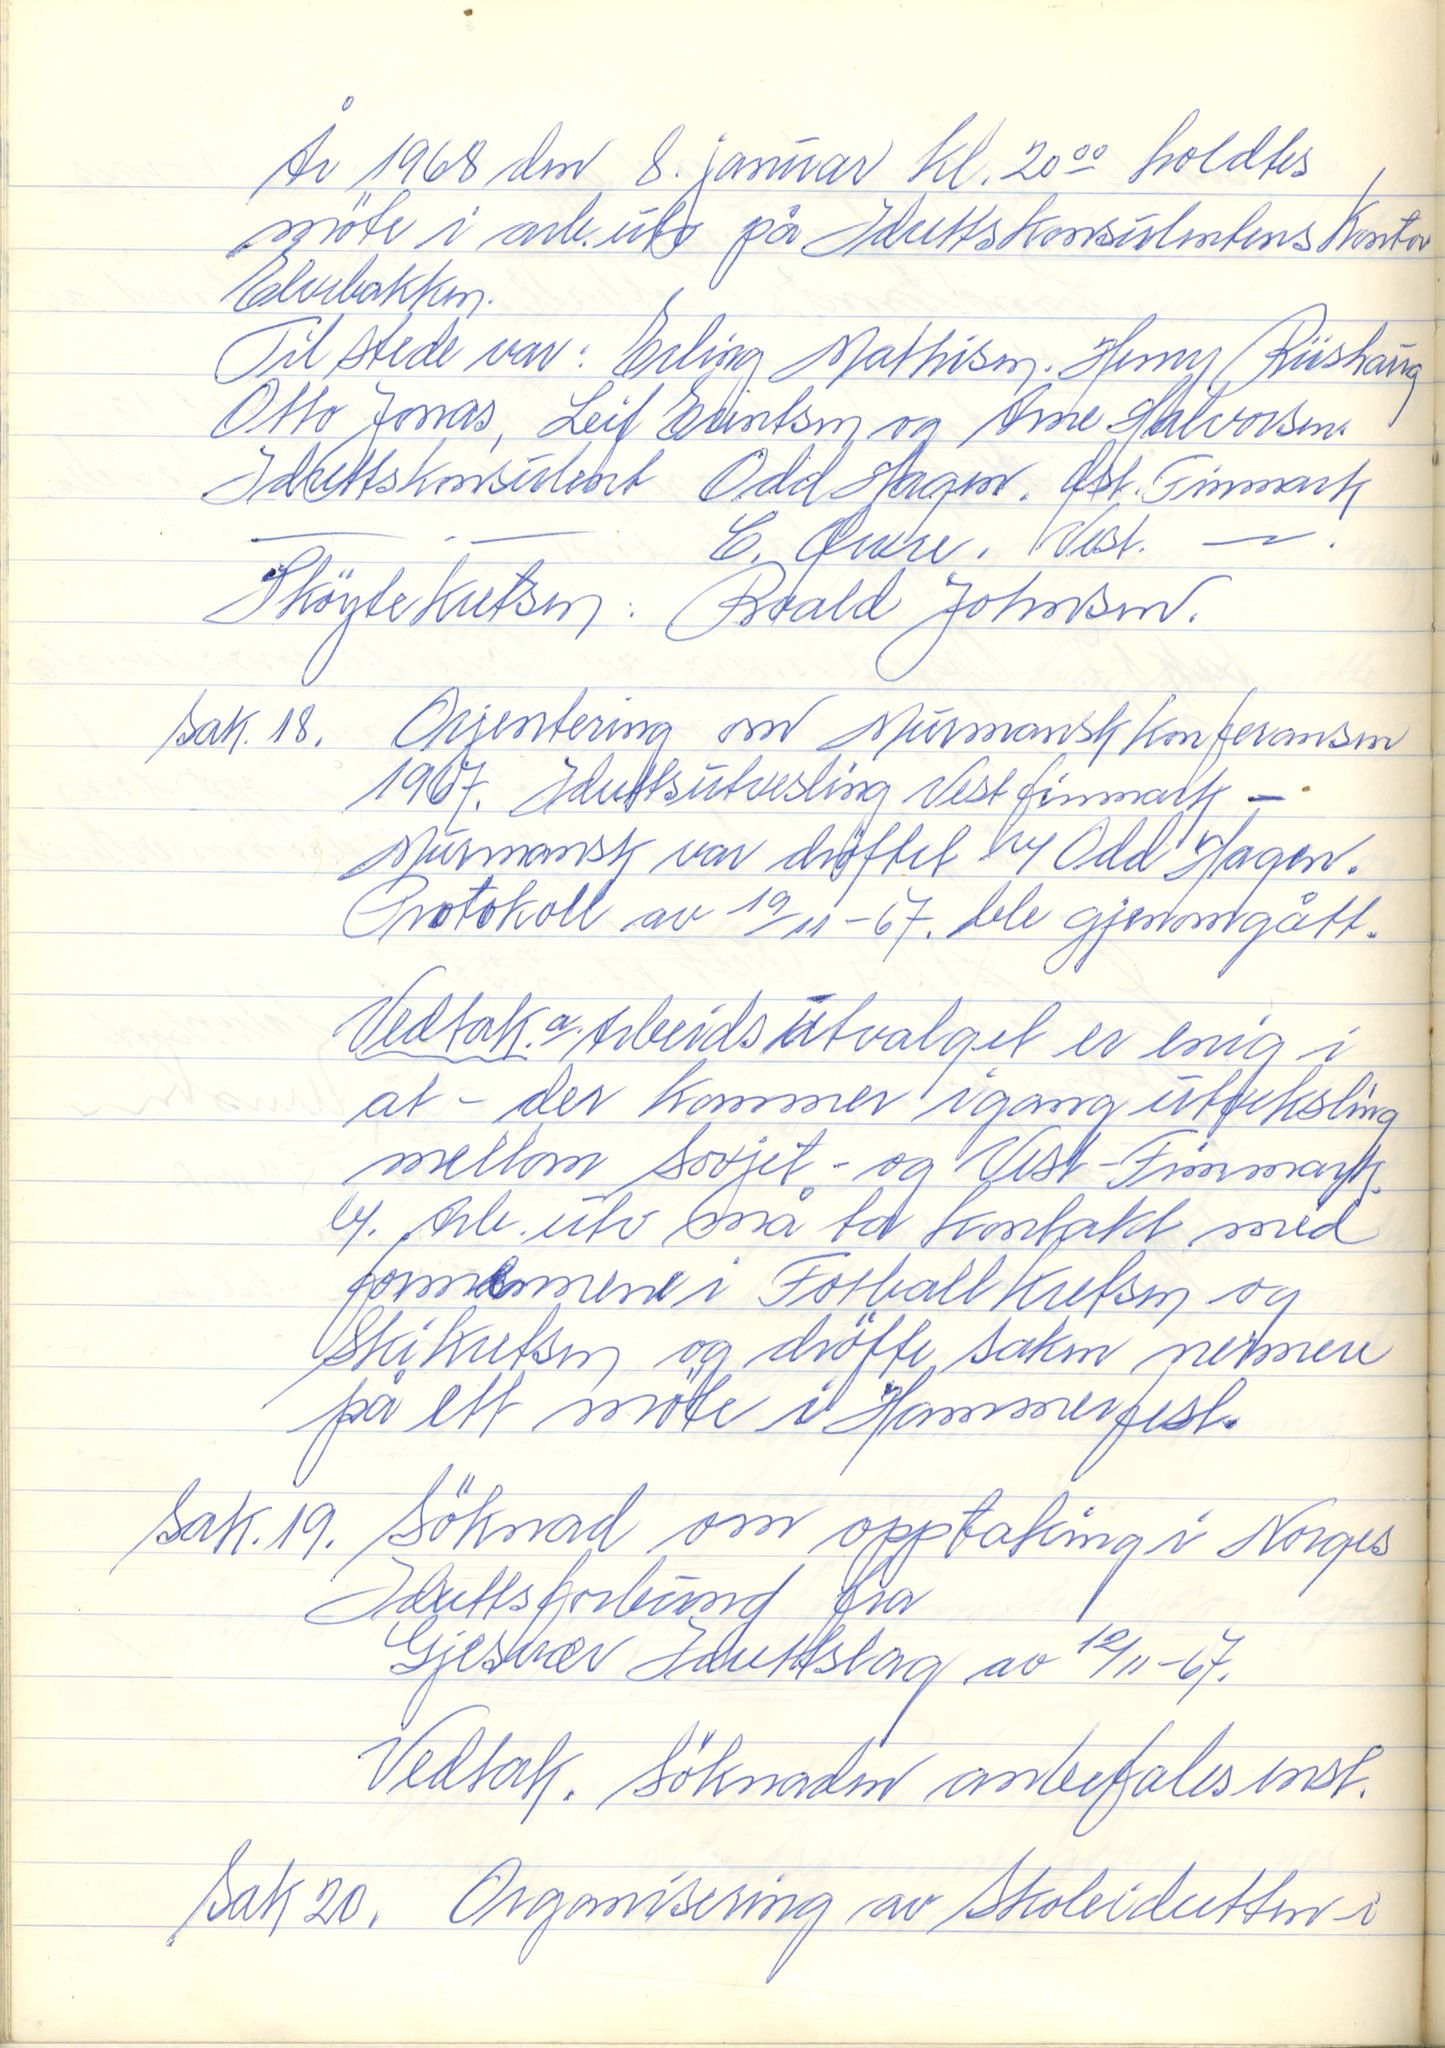 År 1968 den 8. januar kl. 20⁰⁰ holdtes
möte i arb.utv på Idrettskonsulentens Kontor
Elvebakken.
Til stede var: Erling Mathisen. Henry Riishaug
Otto Jonas, Leif Evertsen og Arne Halvorsen.
Idrettskonsulent Odd Hagen. Øst. Finmark
— . — E. Vest. — .
Skøytekretsen: Roald Johnsen.
Sak. 18. Orjentering om Murmansk Konferansen
1967. Idrettsutvesling Vest finmark –
Murmansk var dröftet by Odd Hagen.
Protokoll av 19/11-67. ble gjennomgått.
Vedtak. a. Arbeidsutvalget er enig i
at – der kommer igang utveksling
mellom Sovjet – og Vest-Finmark.
b). Arb.utv må ta kontakt med
formennene i Fotball Kretsen og
Skikretsen og dröfte saken nermere
på ett möte i Hammerfest.
Sak. 19. Söknad om opptaking i Norges
Idrettsforbund fra
Gjesvær Idrettslag av 12/11-67.
Vedtak. Söknaden anbefales enst.
Sak 20. Organisering av Skoleidretten i